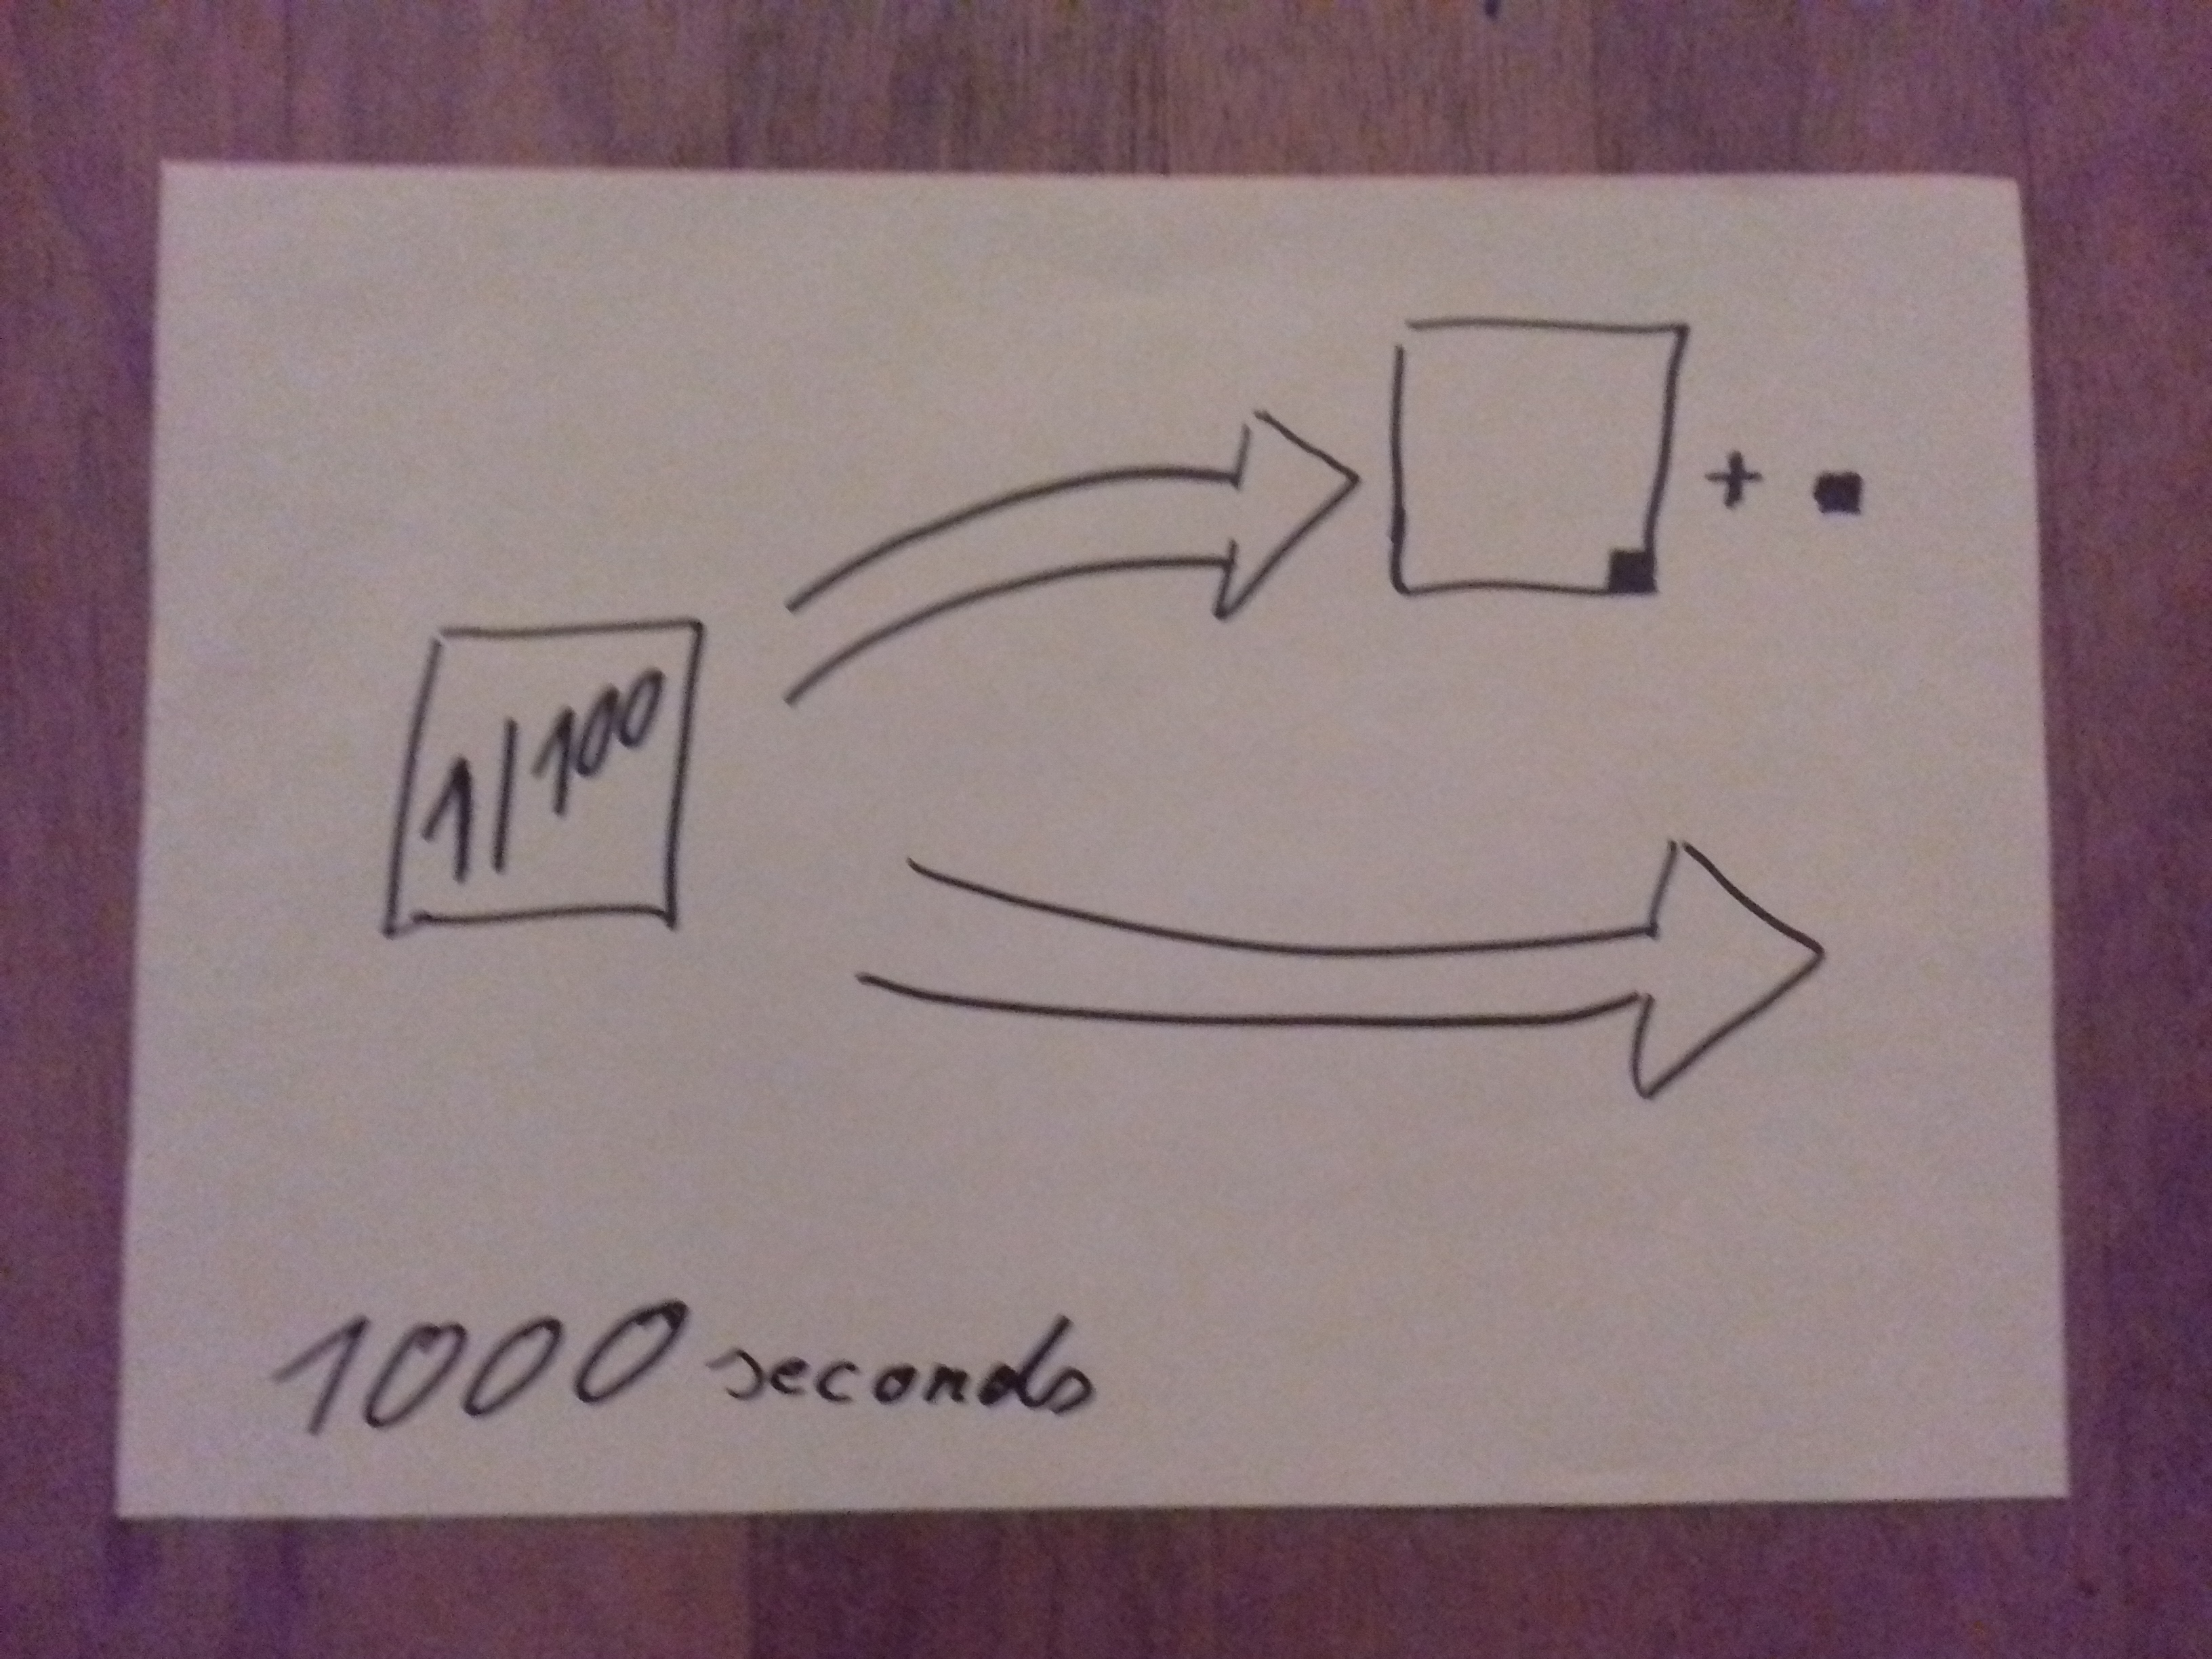 +
1/100
1000 seconds